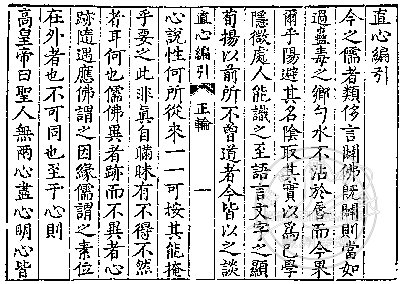 直心編引
今之儒者類侈言闢佛既闢則當如
過蠱毒之鄉勺水不沾於唇而今果
爾乎陽避其名陰取其實以爲己學
隱微處人能識之至語言文字之顯
荀揚以前所不曾道者今皆以之談
直心編引 正論 一
心說性何所從來一一可按其能掩
乎要之此非眞自瞞昧有不得不然
者耳何也儒佛異者跡而不異者心
跡隨遇應佛謂之因緣儒謂之素位
在外者也不可同也至于心則
高皇帝曰聖人無兩心盡心明心皆